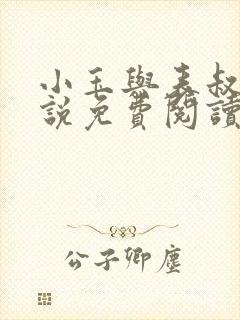 小玉與表叔
說免費閱讀
公子卿塵